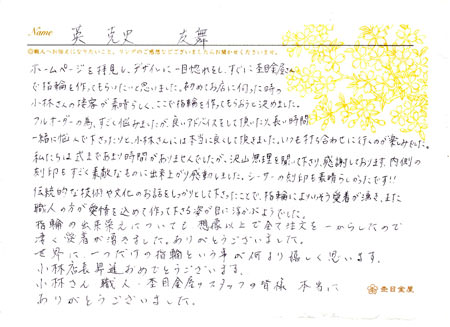 Name 英 克史 友舞
◎職人へお伝えになりたいこと、リングのご感想などございましたらお聞かせくださいませ。
ホームページを拝見し、デザインに一目惚れをし、すぐに杢目金屋さん
で指輪を作ってもらいたいと思いました。初めてお店に伺った時の
小林さんの接客が素晴らしく、ここで指輪を作ってもらおうと決めました。
フルオーダーの為、すごく悩みましたが、良いアドバイスをして頂いたり、長い時間
一緒に悩んで下さったりと、小林さんには本当に良くして頂きました。いつも打ち合わせに行くのが楽しみでした。
私たちは式まであまり時間がありませんでしたが、沢山無理を聞いて下さり、感謝しております。内側の
刻印もすごく素敵なものに出来上がり感動しました。シーサーの刻印も素晴らしかったです!!
伝統的な技術や文化のお話をしっかりとして下さったことで、指輪によりいっそう愛着が湧き、また
職人の方が愛情を込めて作って下さる姿が目に浮かぶようでした。
指輪の出来栄えについても 想像以上で全て注文を一からしたので
凄く愛着が湧きました。ありがとうございました。
世界に一つだけの指輪という事が何より嬉しく思います。
小林店長昇進おめでとうございます。
小林さん 職人・杢目金屋スタッフの皆様 本当に
ありがとうございました。
杢目金屋